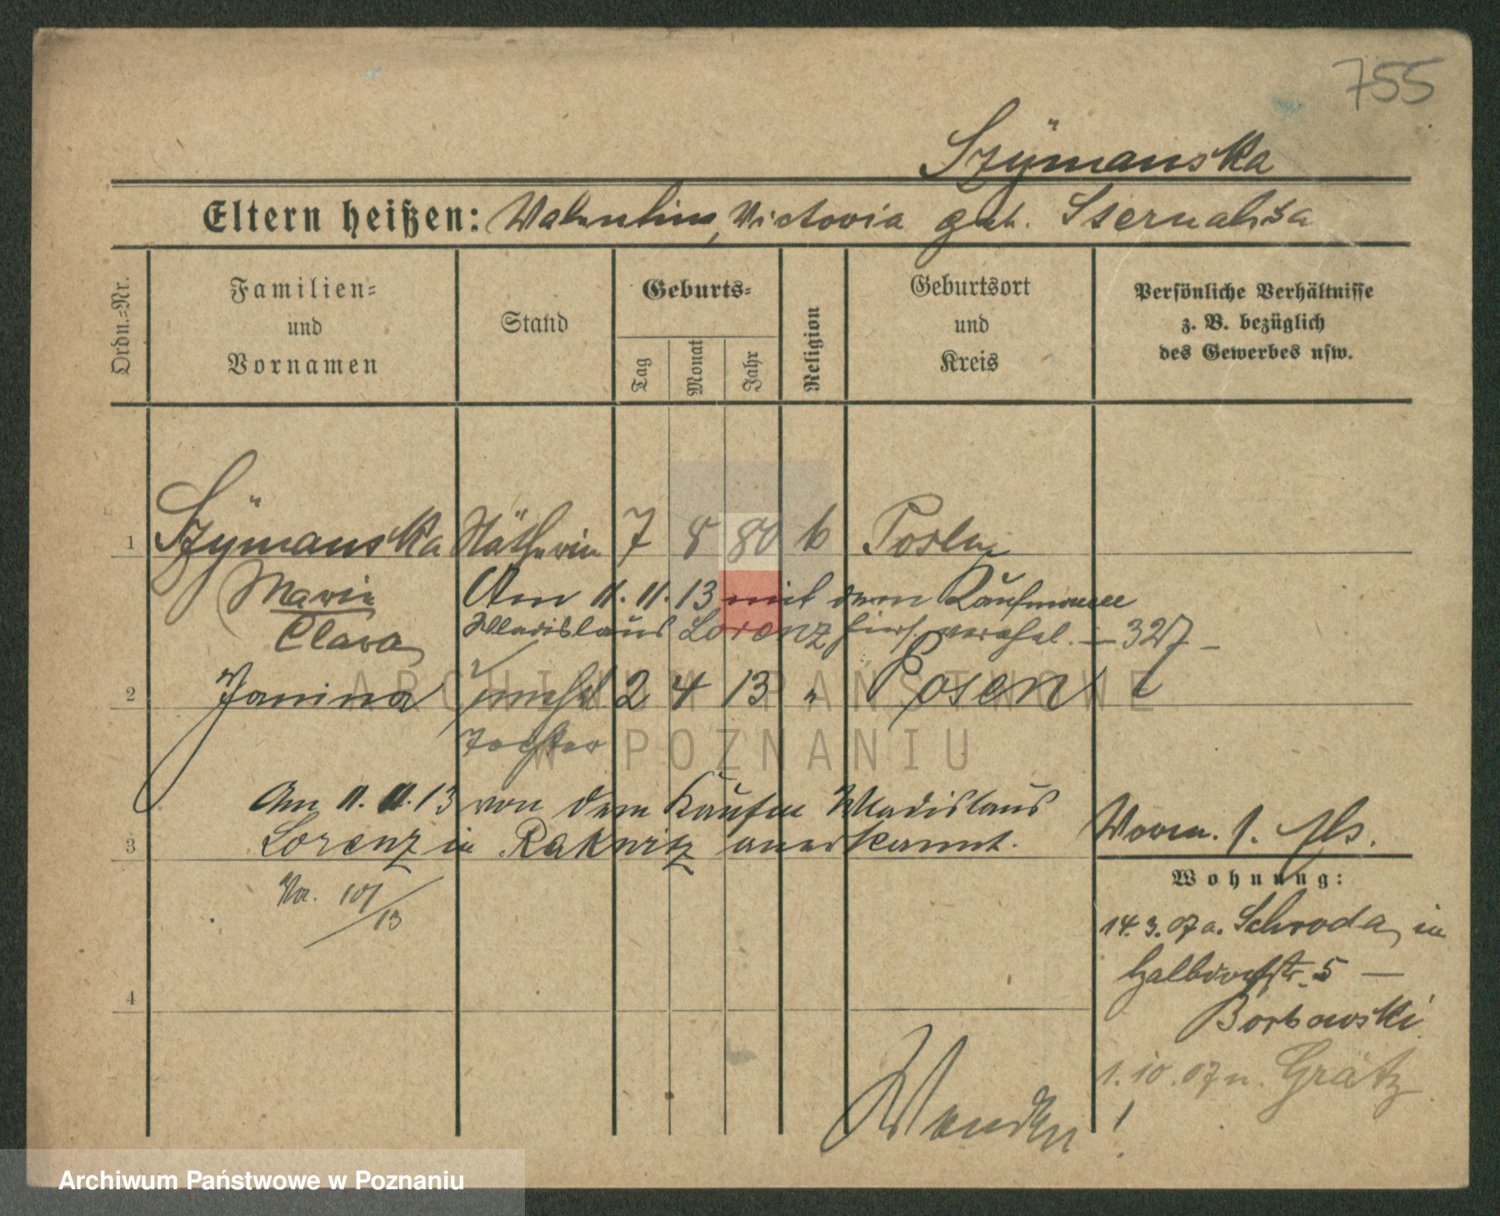 755
Szÿmanska
Eltern heißen: Valentin, Victoria geb.
Ordn.-Nr.
Familien-
und
Vornamen
Stand
Geburts-
Tag
Monat
Jahr
Religion
Geburtsort
und
Kreis
Persönliche Verhältnisse
z. B. bezüglich
des Gewerbes usw.
1 Szÿmanska Nätherin 7 8 80 k
Marie Am 11.11.13 mit dem Kaufmann
Clara Wladislaus Lorenz hier verehel. – 327 –
2 Janina unehel 2 4 13 " Posen
Tochter
Am 11.11.13 von dem Kaufm Wladislaus
3 Lorenz in Rakwitz anerkannt.
No. 101/13
Worm. 1. Als.
Wohnung:
14.3.07 a. Schroda, in
Halbdorfstr. 5 –
Borkowski
1.10.07 n. Grätz
4
Wenden!
ARCHIWUM PAŃSTWOWE
W POZNANIU
Archiwum Państwowe w Poznaniu